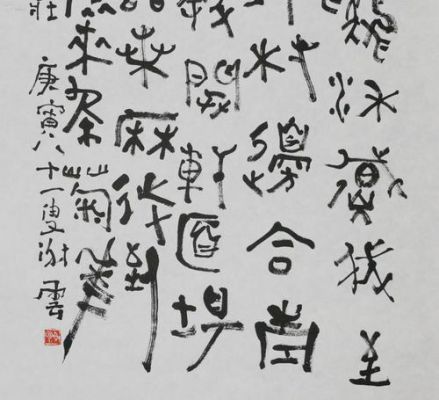 雞黍邀我至
村邊合青
開軒面場
話桑麻待到
還來就菊花
莊
庚寅八十一叟謝雲